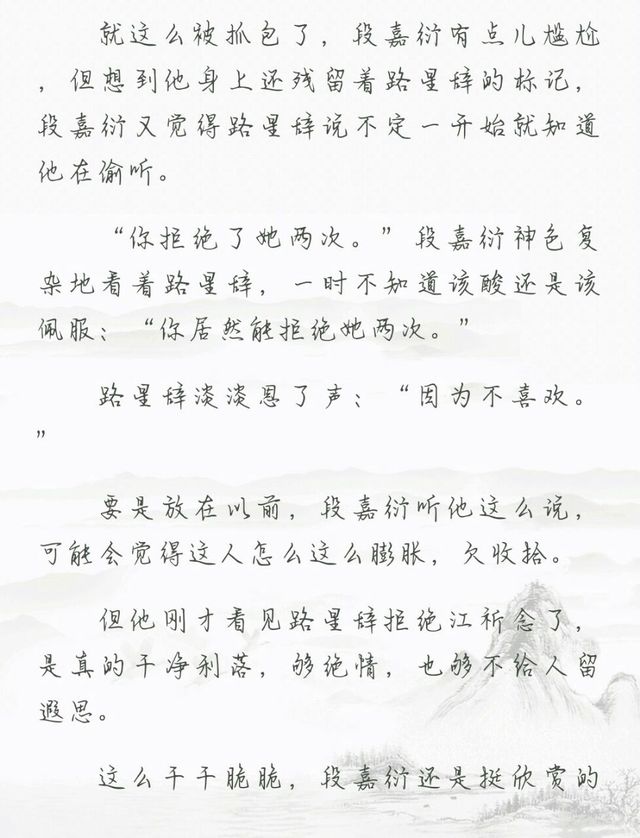 就这么被抓包了，段嘉衍有点儿尴尬
，但想到他身上还残留着路星辞的标记，
段嘉衍又觉得路星辞说不定一开始就知道
他在偷听。
“你拒绝了她两次。”段嘉衍神色复
杂地看着路星辞，一时不知道该酸还是该
佩服：“你居然能拒绝她两次。”
路星辞淡淡恩了声：“因为不喜欢。
”
要是放在以前，段嘉衍听他这么说，
可能会觉得这人怎么这么膨胀，欠收拾。
但他刚才看见路星辞拒绝江祈念了，
是真的干净利落，够绝情，也够不给人留
遐思。
这么干干脆脆，段嘉衍还是挺欣赏的